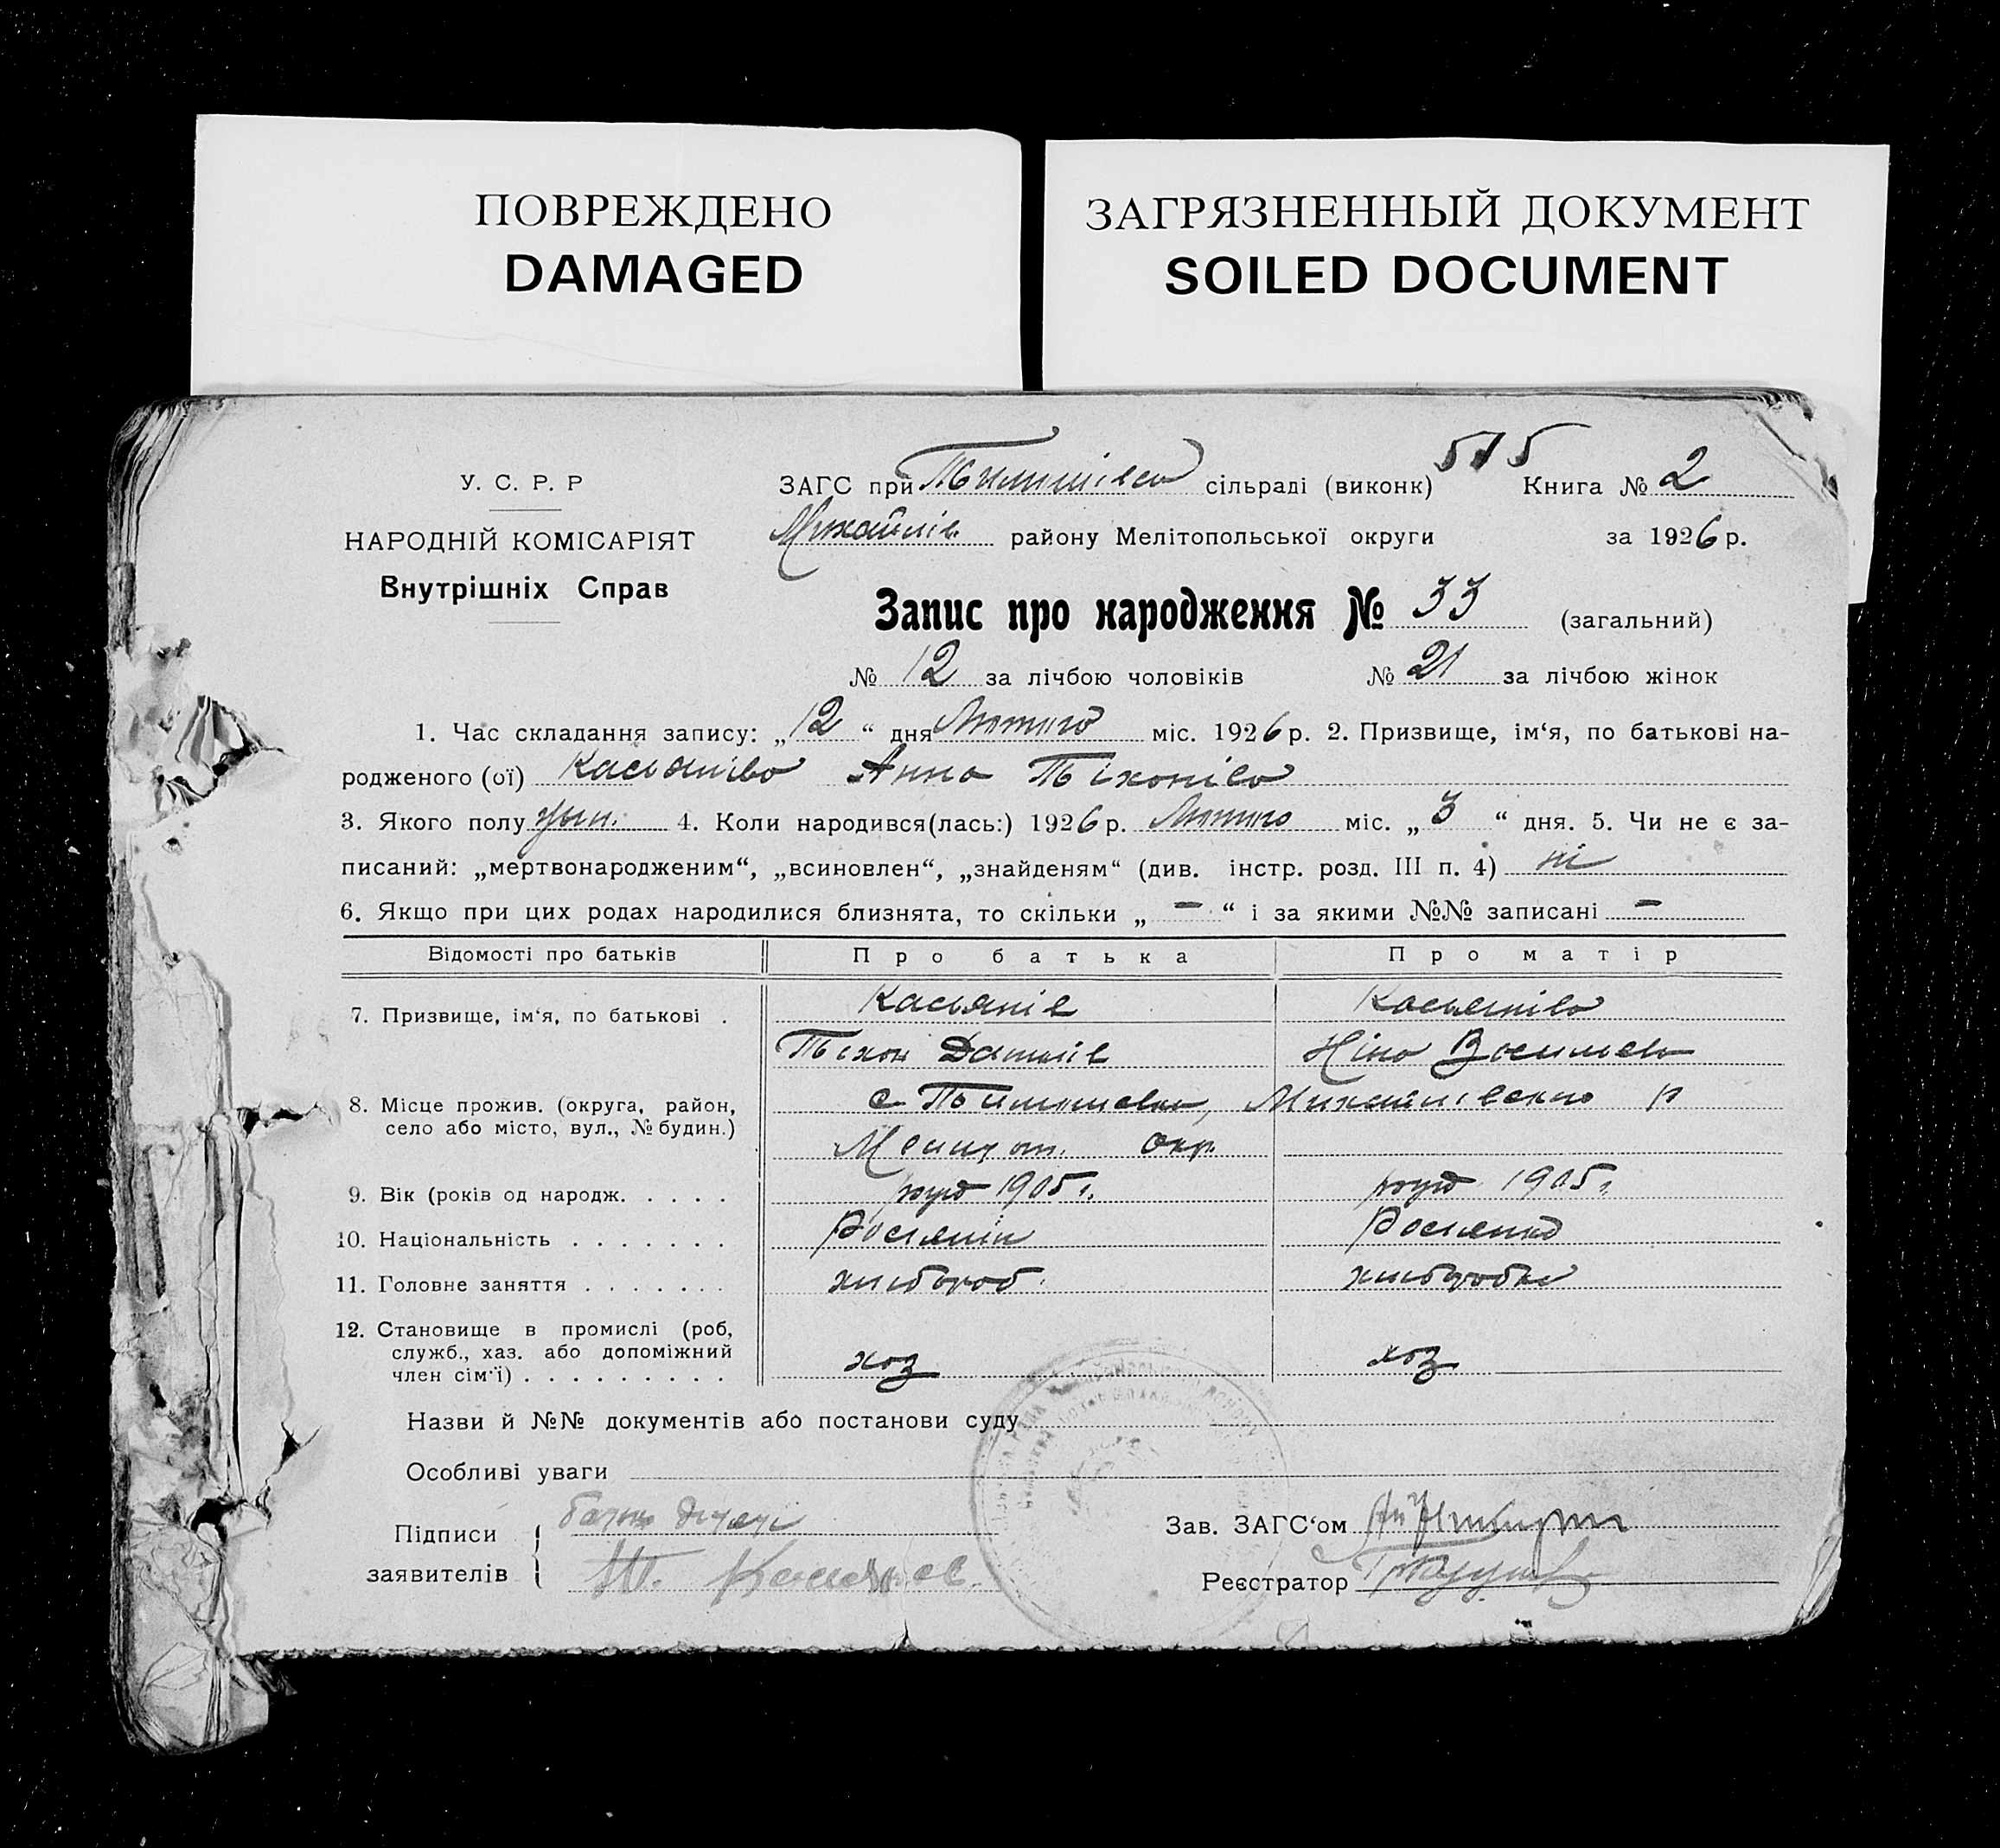 ПОВРЕЖДЕНО
DAMAGED
ЗАГРЯЗНЕННЫЙ ДОКУМЕНТ
SOILED DOCUMENT
515
У. С. Р. Р
НАРОДНІЙ КОМІСАРІЯТ
Внутрішніх Справ
ЗАГС при сільраді (виконк) Книга № 2
Михайлів. району Мелітопольської округи за 1926 р.
Запис про народження № 33 (загальний)
№ 12 за лічбою чоловіків № 21 за лічбою жінок
1. Час складання запису: „12“ дня Лютого міс. 1926 р. 2. Призвище, ім‘я, по батькові на-
родженого (ої) Касьянівa Анна Тіхонівa
3. Якого полу жін. 4. Коли народився(лась:) 1926 р. Лютого міс. „3“ дня. 5. Чи не є за-
писаний: „мертвонародженим“, „всиновлен“, „знайденям“ (див. інстр. розд. III п. 4) ні
6. Якщо при цих родах народилися близнята, то скільки „ — “ і за якими №№ записані —
Відомості про батьків Про батька Про матір
7. Призвище, ім‘я, по батькові . Касьянів Касьянівa
Тіхон Ніна
8. Місце прожив. (округа, район, село або місто, вул., № будин.) с. Тимошівка, Михайлівського р
Меліт. окр.
9. Вік (років од народж. . . . . 1905 г. 1905 г.
10. Національність . . . . . . . Росіянін Росіянка
11. Головне заняття . . . . . . . хлібороб. хліборобка
12. Становище в промислі (роб, служб., хаз. або допоміжний член сім‘ї) . . . . . . . . . хоз хоз
Назви й №№ документів або постанови суду
Особливі уваги
Підписи батько
заявителів Т. Касьянов.
Зав. ЗАГС‘ом
Реєстратор